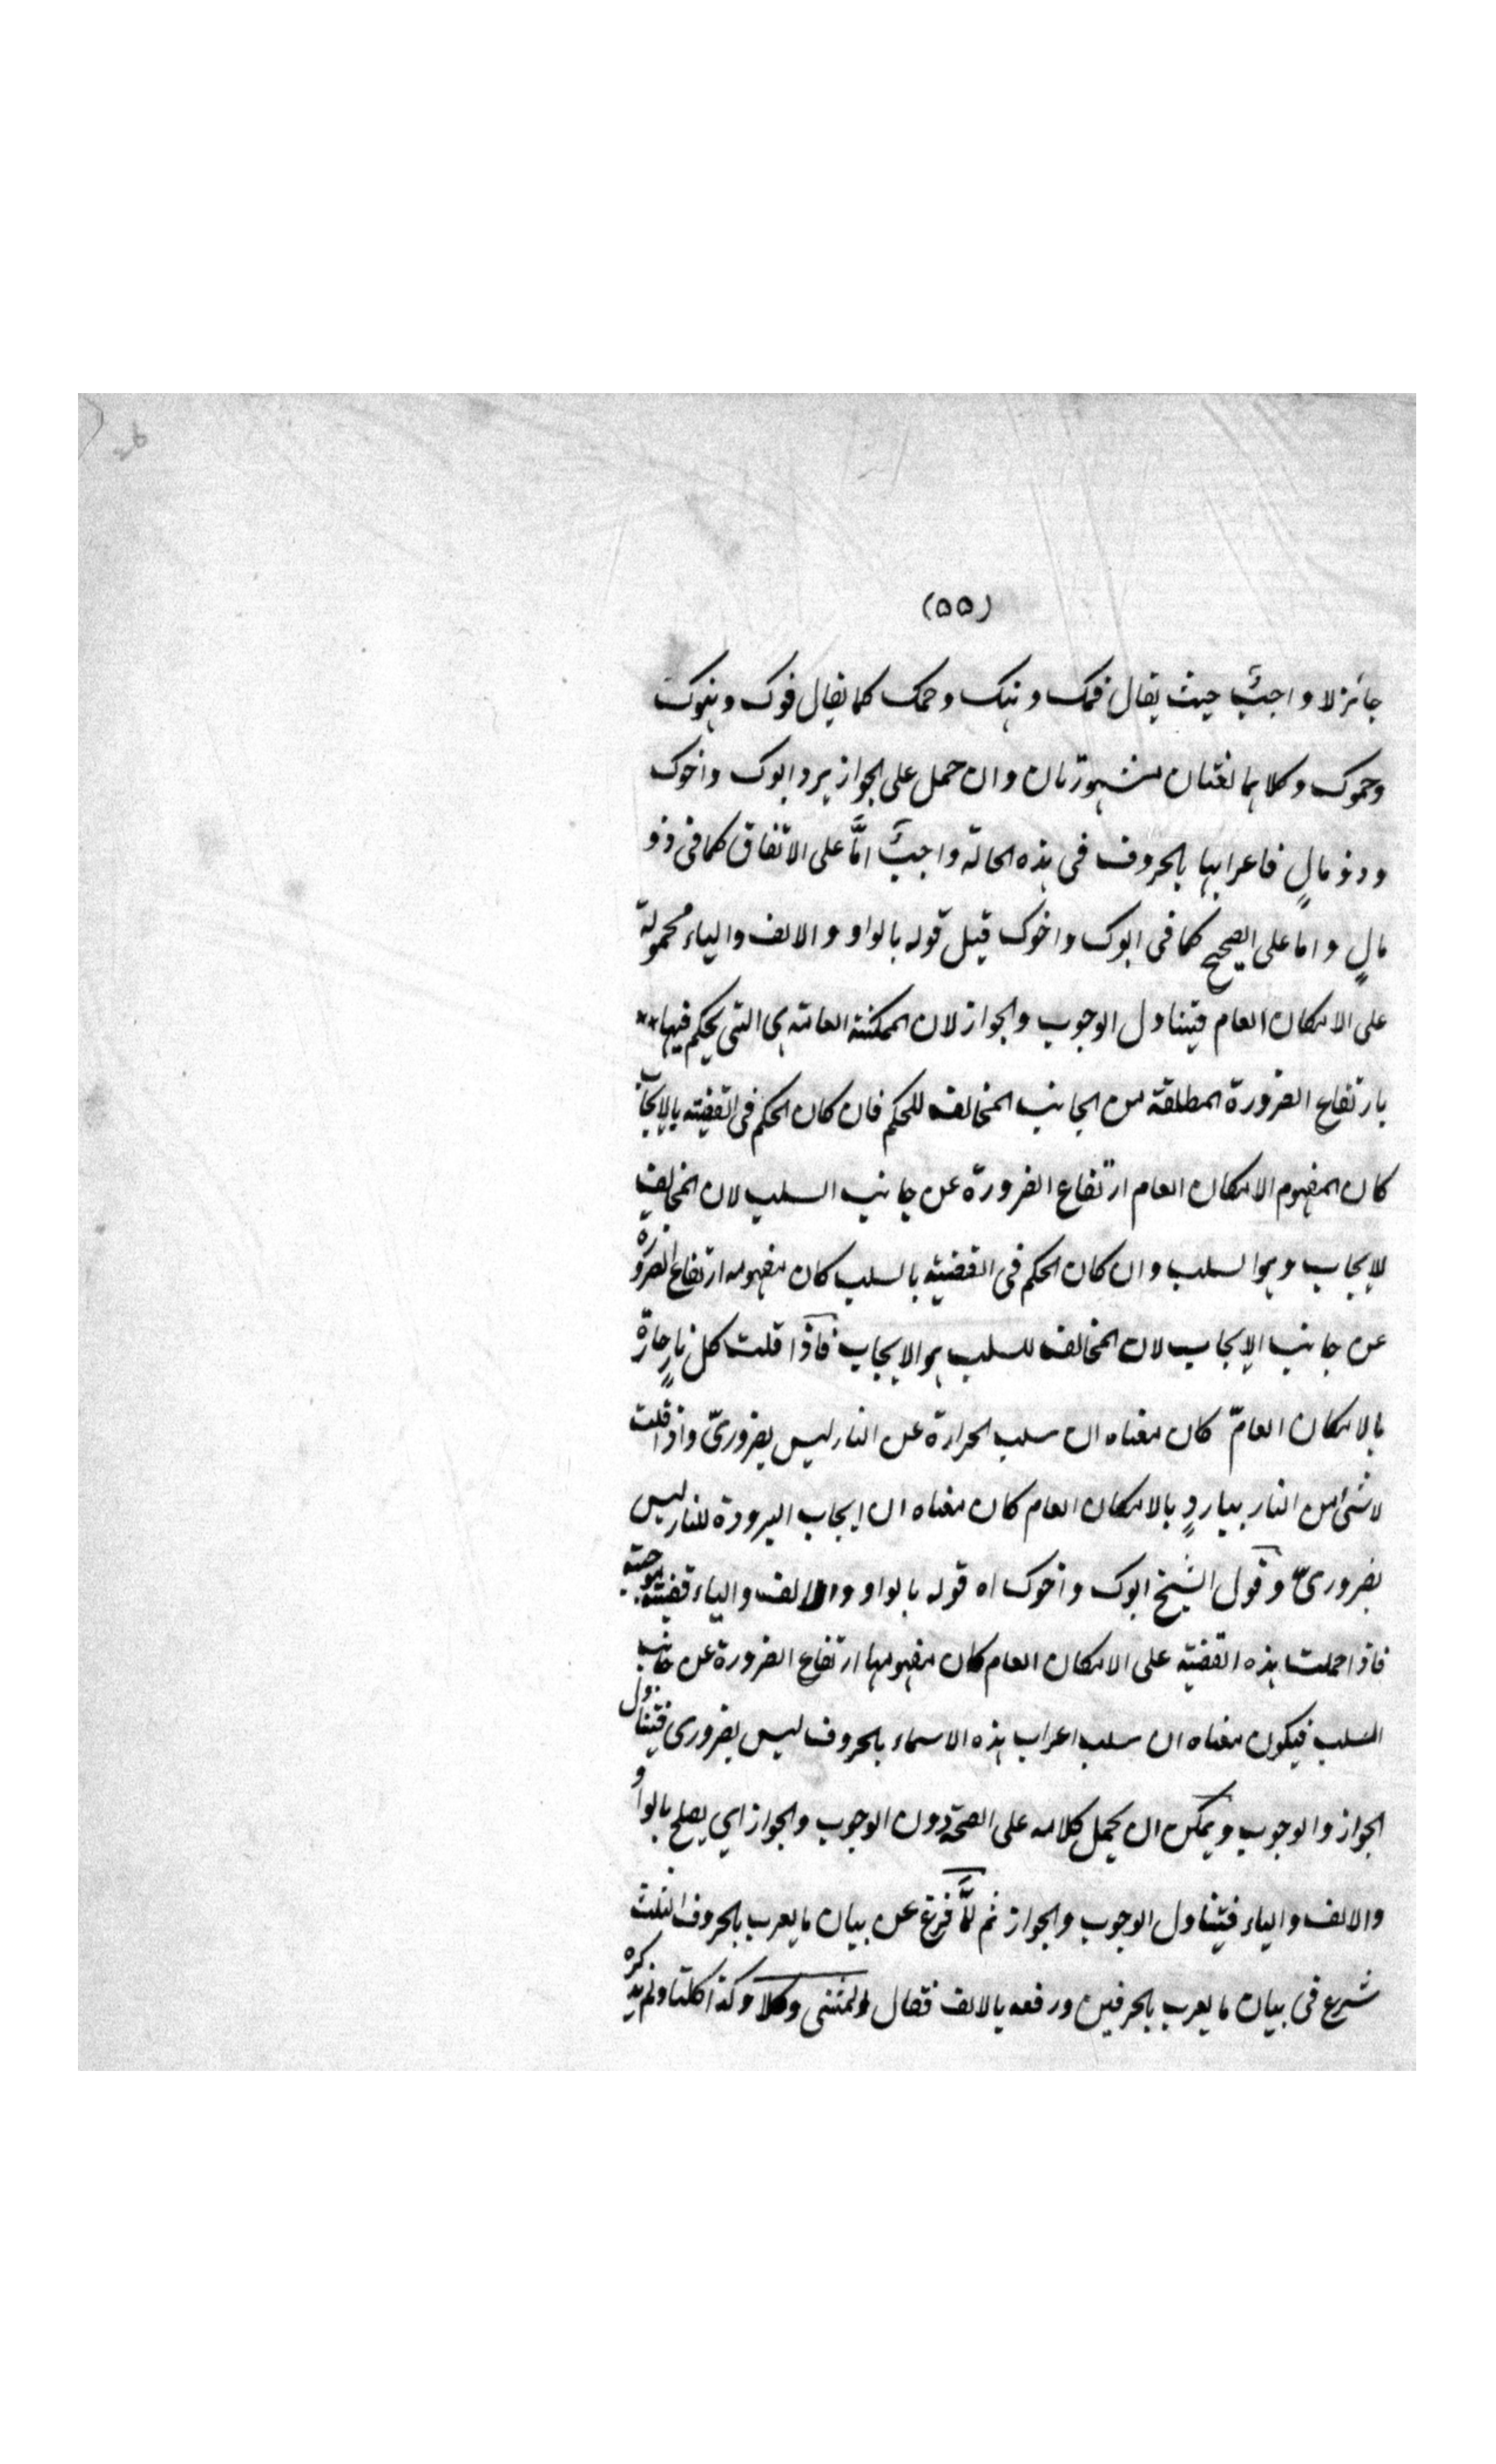 (٥٥)
جائز لا واجبٌ حيث يقال فمك وهنك وحمك كما يقال فوك وهنوك
وحموك وكلاهما لغتان مشهورتان وان حمل على الجواز يرد ابوك واخوك
وذو مالٍ فاعرابها بالحروف فى هذه الحالة واجبٌ امَّا على الاتفاق كما فى ذو
مالٍ واما على الصحيح كما فى ابوك واخوك قيل قوله بالواو والالف والياء محمولة
على الامكان العام فيتناول الوجوب والجواز لان الممكنة العامة هى التى يحكم فيها
بارتفاع الضرورة المطلقة من الجانب المخالف للحكم فان كان الحكم فى القضية بالايجاب
كان المفهوم الامكان العام ارتفاع الضرورة عن جانب السلب لان المخالف
للايجاب وهو السلب وان كان الحكم فى القضية بالسلب كان مفهومه ارتفاع الضرورة
عن جانب الايجاب لان المخالف للسلب هو الايجاب فاذا قلت كل نارٍ حارة
بالامكان العامّ كان معناه ان سلب الحرارة عن النار ليس بضرورىّ واذا قلت
لا شئ من النار بباردٍ بالامكان العام كان معناه ان ايجاب البرودة للنار ليس
بضرورىّ وقول الشيخ ابوك واخوك اه قوله بالواو والالف والياء قضية موجبة
فاذا حملت هذه القضية على الامكان العام كان مفهومها ارتفاع الضرورة عن جانب
السلب فيكون معناه ان سلب اعراب هذه الاسماء بالحروف ليس بضرورى فيتناول
الجواز والوجوب ويمكن ان يحمل كلامه على الصحة دون الوجوب والجواز اي يصلح بالواو
والالف والياء فيتناول الوجوب والجواز ثم لمَّا فرغ عن بيان ما يعرب بالحروف الثلث
شرع فى بيان ما يعرب بالحرفين ورفعه بالالف فقال والمثنى وكلا وكذا كلتا ولم يذكره